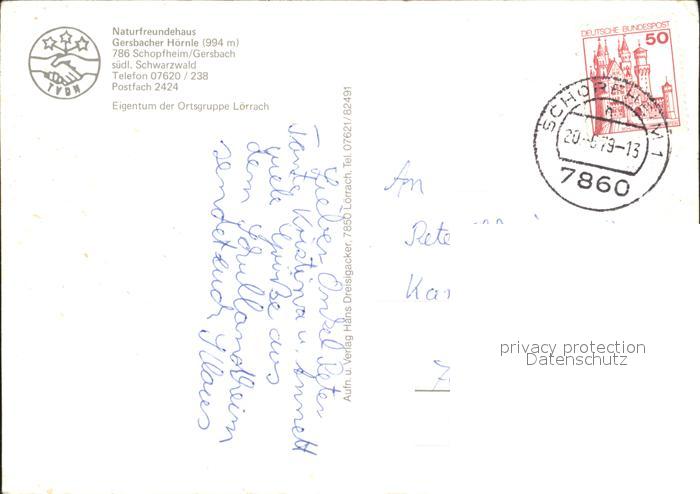 Naturfreundehaus
Gersbacher Hörnle (994 m)
786 Schopfheim/Gersbach
südl. Schwarzwald
Telefon 07620 / 238
Postfach 2424
Eigentum der Ortsgruppe Lörrach
TVDN
Lieber Onkel Peter
Tante Kristina u. Annett
viele Grüße aus
dem Schullandheim
sendet euch Klaus
Aufn. u. Verlag Hans Dreisigacker, 7850 Lörrach, Tel. 07621/82491
DEUTSCHE BUNDESPOST
50
SCHOPFHEIM 1
79-13
7860
An
Pete
Ka
privacy protection
Datenschutz